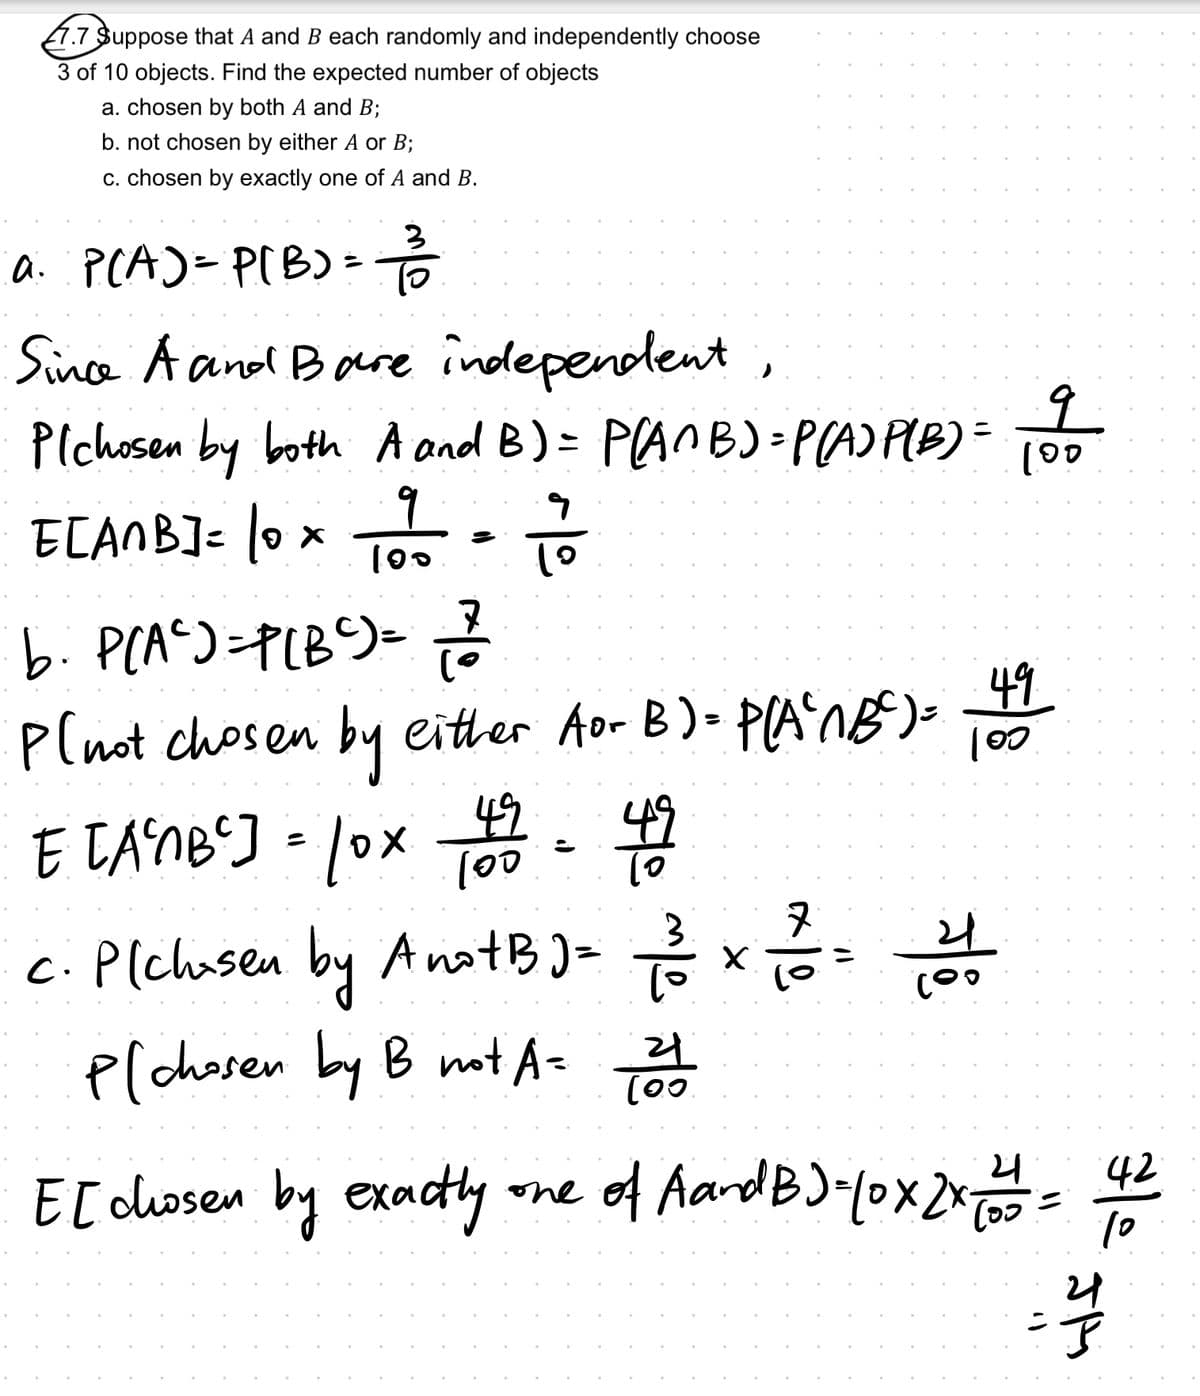 7.7 Suppose that A and B each randomly and independently choose
3 of 10 objects. Find the expected number of objects
a. chosen by both A and B;
b. not chosen by either A or B;
c. chosen by exactly one of A and B.
a. P(A) = P(B) = 3/10
Since A and B are independent,
P(chosen by both A and B) = P(A∩B) = P(A)P(B) = 9/100
E[A∩B] = 10 × 9/100 = 9/10
b. P(Aᶜ) = P(Bᶜ) = 7/10
P(not chosen by either A or B) = P(Aᶜ∩Bᶜ) = 49/100
E[Aᶜ∩Bᶜ] = 10 × 49/100 = 49/10
c. P(chosen by A not B) = 3/10 × 7/10 = 21/100
P(chosen by B not A = 21/100
E[chosen by exactly one of A and B) = 10 × 2 × 21/100 = 42/10
= 21/5